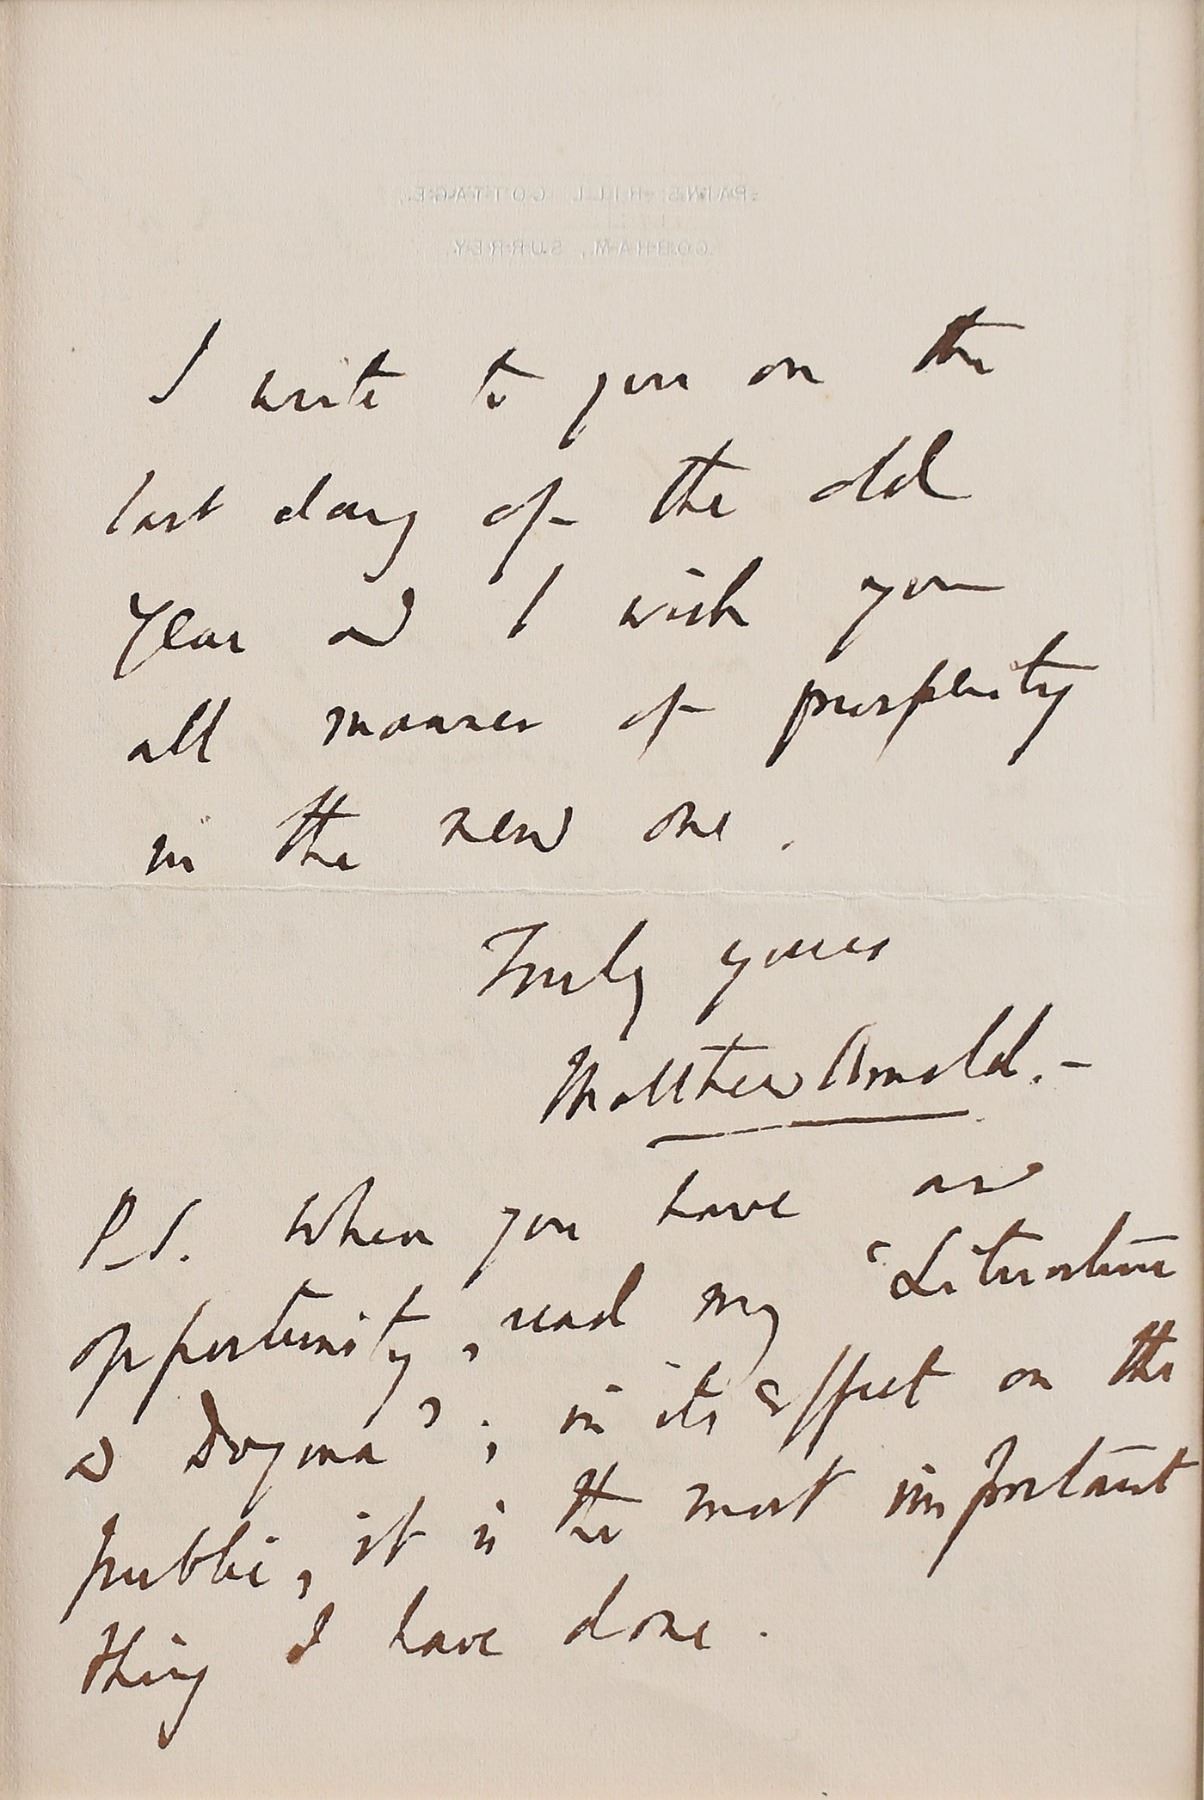 PAINS HILL COTTAGE.
COBHAM, SURREY.
I write to you on the
last day of the old
Year and I wish you
all manner of prosperity
in the new one.
Truly yours
Matthew Arnold.—
P.S. When you have an
opportunity, read my "Literature
& Dogma"; in its effect on the
public, it is the most important
thing I have done.